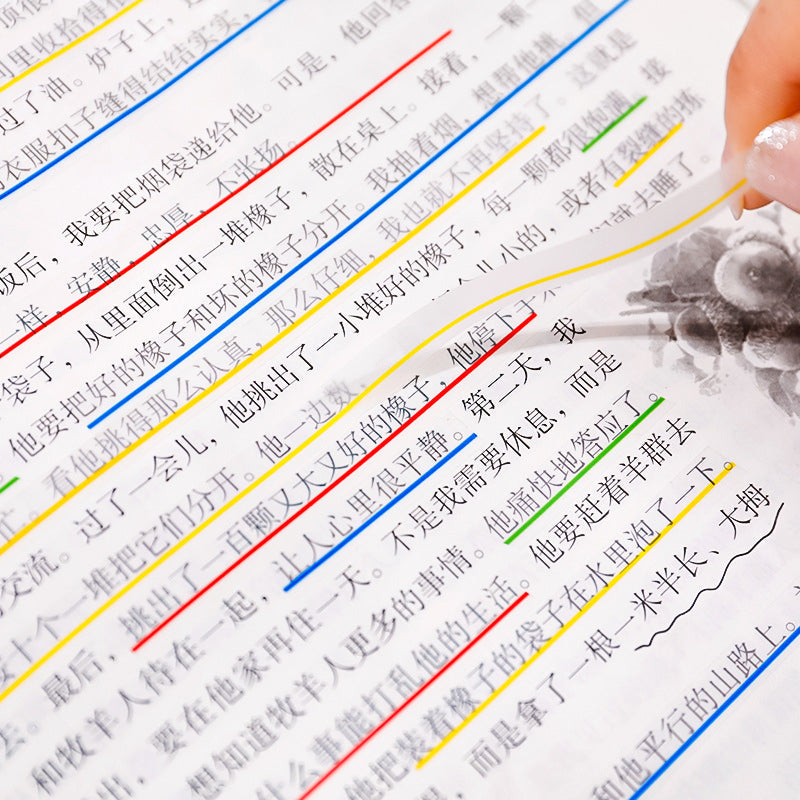 里收拾得很
过了油。炉子上，
衣服扣子缝得结结实实，
饭后，我要把烟袋递给他。可是，他回答
一样，安静，忠厚，不张扬。
袋子，从里面倒出一堆橡子，散在桌上。接着，一颗一
他要把好的橡子和坏的橡子分开。我抽着烟，想帮他挑。但
忙。看他挑得那么认真，那么仔细，我也就不再坚持了。这就是
交流。过了一会儿，他挑出了一小堆好的橡子，每一颗都很饱满。接
十个一堆把它们分开。他一边数， 个儿小的，或者有裂缝的拣
最后，挑出了一百颗又大又好的橡子，他停下手 们就去睡了。
和牧羊人待在一起，让人心里很平静。第二天，我
出，要在他家再住一天。不是我需要休息，而是
想知道牧羊人更多的事情。他痛快地答应了。
什么事能打乱他的生活。他要赶着羊群去
他把装着橡子的袋子在水里泡了一下。
，而是拿了一根一米半长、大拇
和他平行的山路上。